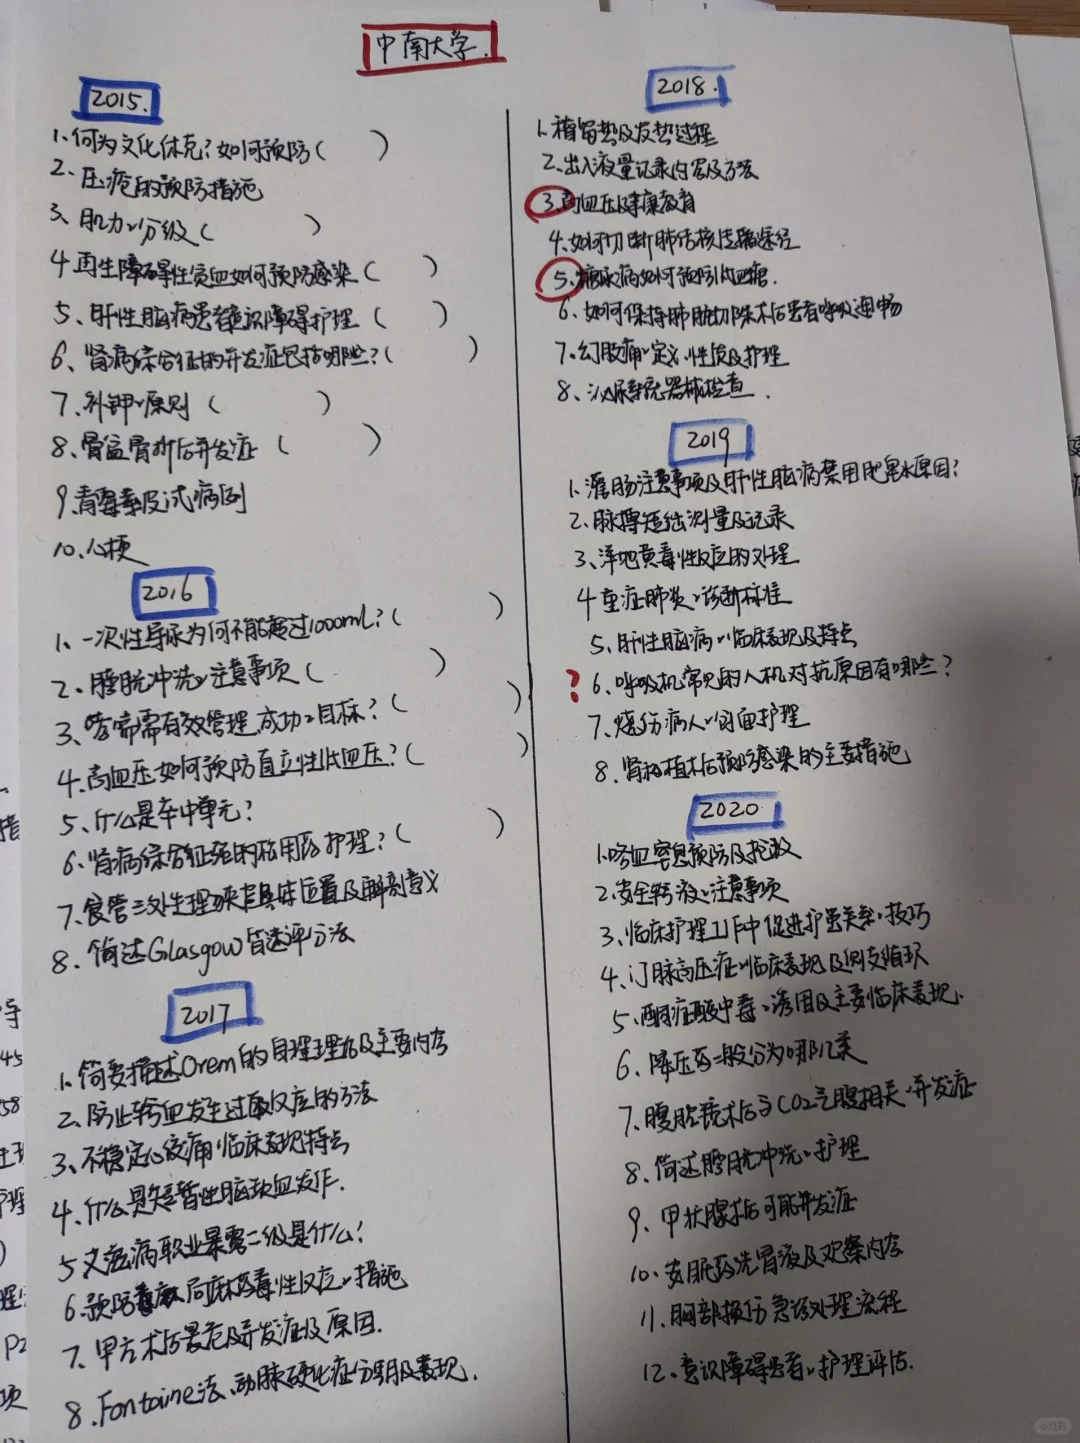 中南大学.
2015.
1.何为文化休克?如何预防( )
2、压疮的预防措施
3、肌力分级( )
4.再生障碍性贫血如何预防感染( )
5、肝性脑病患者意识障碍护理( )
6、肾病综合征的并发症包括哪些?( )
7、补钾原则( )
8、骨盆骨折后并发症( )
9.青霉素皮试病例
10、心梗
2016
1、一次性导尿为何不能超过1000mL?( )
2、膀胱冲洗注意事项( )
3、哮喘需有效管理,成功目标?( )
4、高血压如何预防直立性低血压?( )
5、什么是卒中单元?
6、肾病综合征的应用药护理?( )
7、食管三处生理狭窄具体位置及解剖意义
8、简述Glasgow昏迷评分法
2017
1、简要描述Orem的自理理论及主要内容
2、防止输血发生过敏反应的方法
3、不稳定心绞痛临床表现特点
4、什么是短暂性脑缺血发作.
5艾滋病职业暴露二级是什么?
6.预防局麻药毒性反应措施
7、甲亢术后最危及并发症及原因.
8.Fontaine法、动脉硬化症分期及表现.
2018.
1.稽留热及发热过程
2、出入液量记录内容及方法
3.高血压健康教育
4.如何切断肺结核传播途径
5.糖尿病如何预防低血糖.
6、如何保持肺脏切除术后患者呼吸通畅
7.幻肢痛定义、性质及护理
8、泌尿系统器械检查.
2019
1.灌肠注意事项及肝性脑病禁用肥皂水原因?
2、脉搏短绌测量及记录
3、洋地黄毒性反应的处理
4重症肺炎诊断标准
5.肝性脑病临床表现及特点
? 6、呼吸机常见的人机对抗原因有哪些?
7、烧伤病人创面护理
8、肾移植术后预防感染的主要措施
2020
1.咯血窒息预防及抢救
2.安全输液注意事项
3、临床护理工作中促进护患关系技巧
4、门脉高压症临床表现及侧支循环
5、酮症酸中毒诱因及主要临床表现.
6、降压药一般分为哪几类
7、腹腔镜术后与CO2气腹相关并发症
8、简述膀胱冲洗护理
9、甲状腺术后可能并发症
10、安眠药洗胃液及观察内容
11、胸部损伤急诊处理流程
12.意识障碍患者护理评估.
小红书